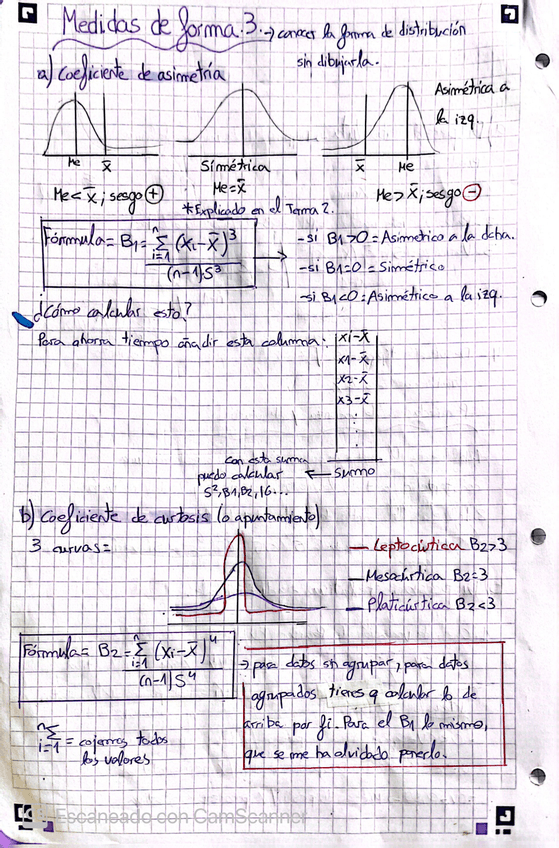 Medidas de forma.3. → conocer la forma de distribución
sin dibujarla.
a) Coeficiente de asimetría
Asimétrica a
la izq.
Me x̄
Simétrica
x̄ Me
Me < x̄; sesgo (+)
Me = x̄
Me > x̄; sesgo (-)
*Explicado en el Tema 2.
Fórmula = B1 = n Σ i=1 (xi - x̄)³ / (n-1)S³
- si B1>0 = Asimetrico a la dcha.
- si B1=0 = Simétrico
- si B1<0 = Asimétrico a la izq.
¿Cómo calcular esto?
Para ahorra tiempo añadir esta columna:
xi - x̄
x1 - x̄
x2 - x̄
x3 - x̄
con esta suma
puedo calcular ← Sumo
S², B1, B2, 16...
b) Coeficiente de curtosis (o apuntamiento)
3 curvas =
— Leptocúrtica B2>3
— Mesocúrtica B2=3
— Platicúrtica B2<3
Fórmula = B2 = n Σ i=1 (xi - x̄)⁴ / (n-1)S⁴
→ para datos sin agrupar, para datos
agrupados tienes q calcular lo de
arriba por fi. Para el B1 lo mismo,
que se me ha olvidado ponerlo.
n Σ i=1 = cojemos todos
los valores
Escaneado con CamScanner